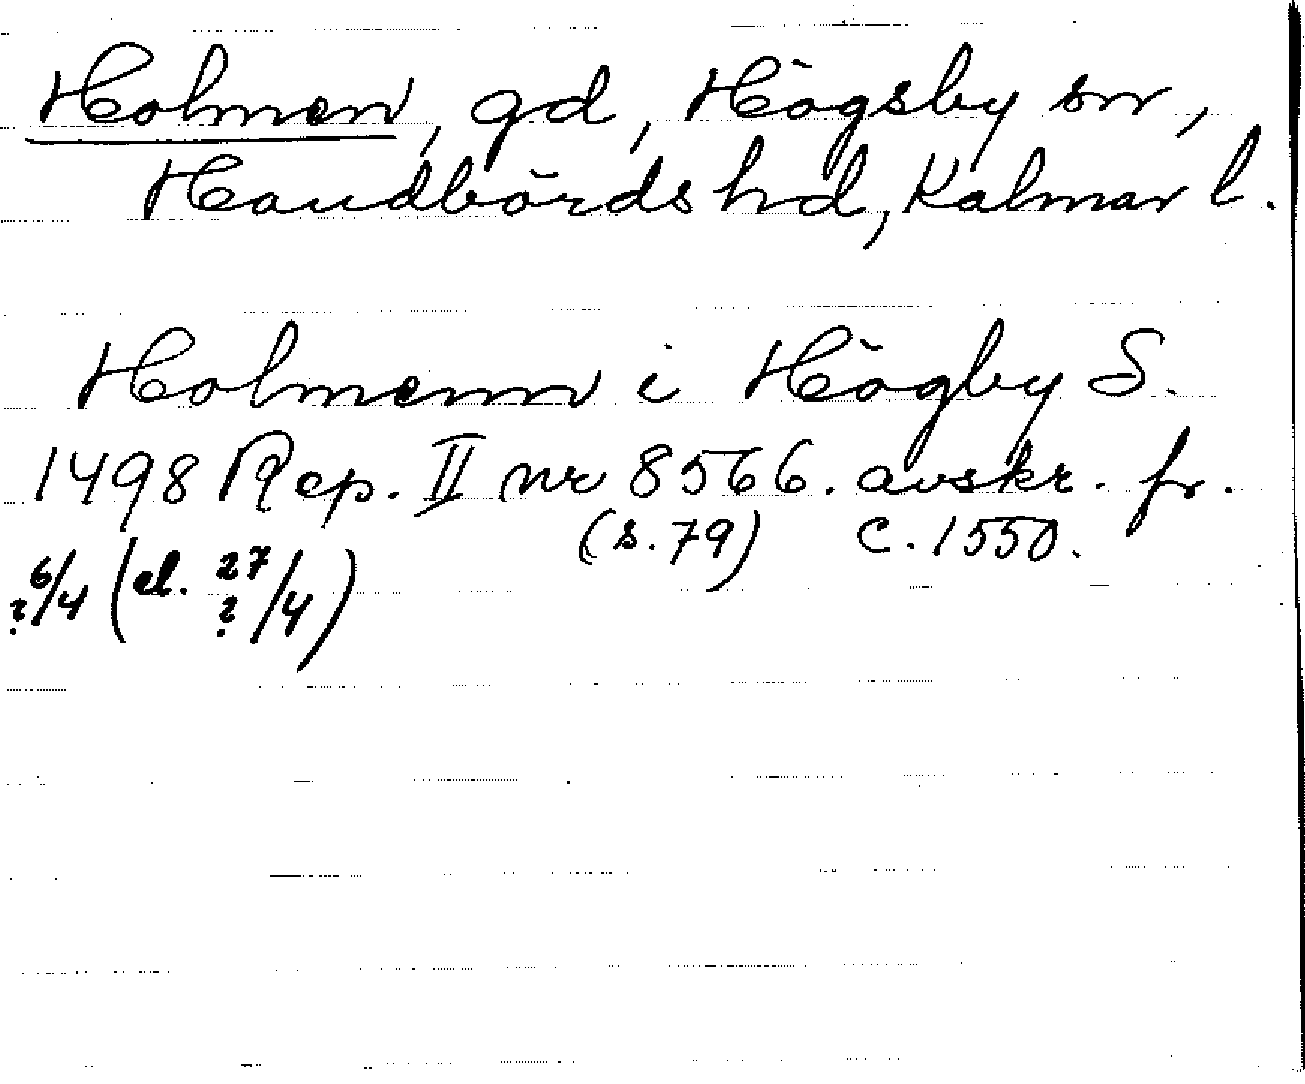 Holmen, gd, Högsby sn,
Handbörds hd, Kalmar l.
Holmenn i Högby S.
1498 Rep. II nr 8566. avskr. fr.
(s. 79) c. 1550.
?6/4 (el. ?27/4)